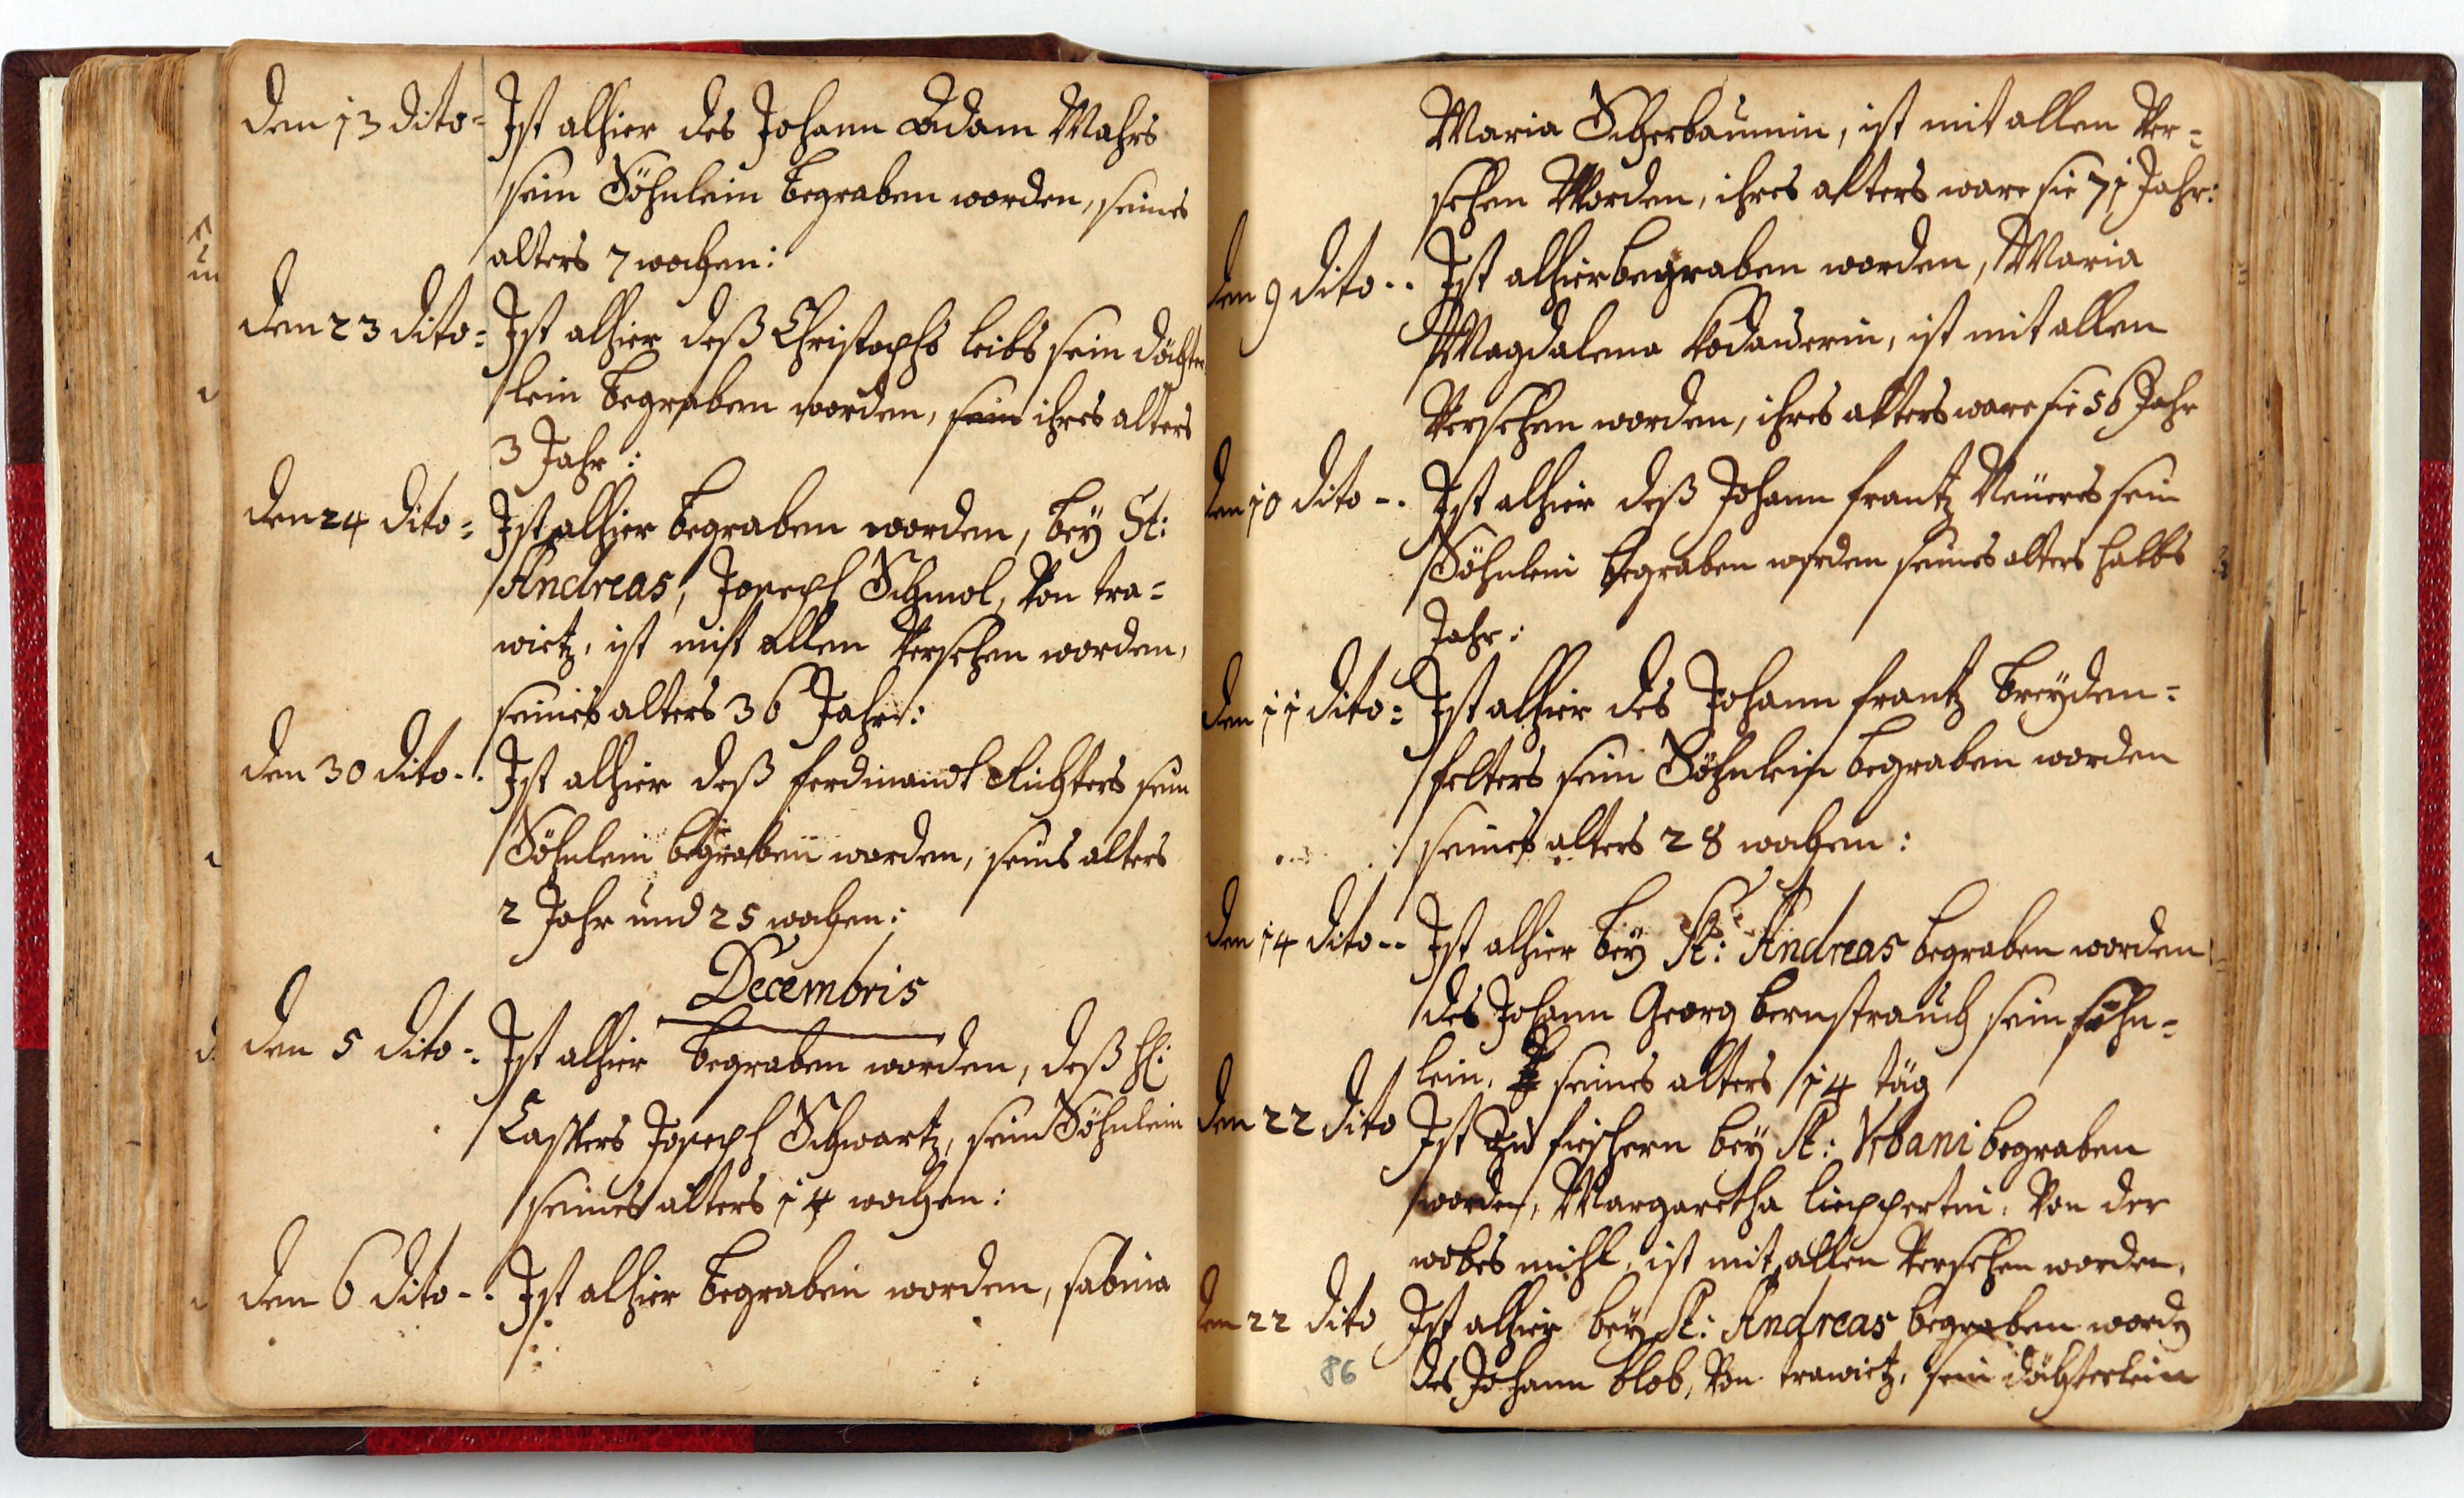 den 13 dito = Ist alhier des Johann Adam Mahrs
sein Söhnlein begraben worden, seines
alters 7 wochen:
den 23 dito = Ist alhier deß Christophs leibs sein döchter
lein begraben worden, sein ihres alters
3 Jahr:
den 24 dito = Ist alhier begraben worden, bey St:
Andreas, Joseph Schmol, Von tra=
wietz, ist mit allen Versehen worden,
seines alters 36 Jahr:
den 30 dito -. Ist alhier deß ferdinandt Richters sein
Söhnlein begraben worden, seins alters
2 Jahr und 25 wochen:
Decembris
den 5 dito -. Ist alhier begraben worden, deß H:
Caspers Joseph Schwartz, sein Söhnlein
seines alters 14 wochen:
den 6 dito -. Ist alhier begraben worden, sabina
Maria Scherbaumin, ist mit allen Ver=
sehen Worden, ihres alters ware sie 71 Jahr:
den 9 dito -. Ist alhier begraben worden, Maria
Magdalena Todauerin, ist mit allen
Versehen worden, ihres alters ware sie 56 Jahr
den 10 dito -. Ist alhier deß Johann frantz Neüeres sein
Söhnlein begraben worden seines alters halbs
Jahr:
den 11 dito = Ist alhier des Johann frantz breyden=
felters sein Söhnlein begraben worden
seines alters 28 wochen:
den 14 dito -- Ist alhier bey St: Andreas begraben worden
des Johann Georg bernstrauch sein söhn=
lein, seines alters 14 täg
den 22 dito Ist zu fischern bey St: Vrbani begraben
worden, Margaretha lieppertin, Von der
wobes mihl, ist mit allen Versehen worden,
den 22 dito Ist alhier bey St: Andreas begraben worden
des Johann blob, Von trawietz, sein döchterlein
86